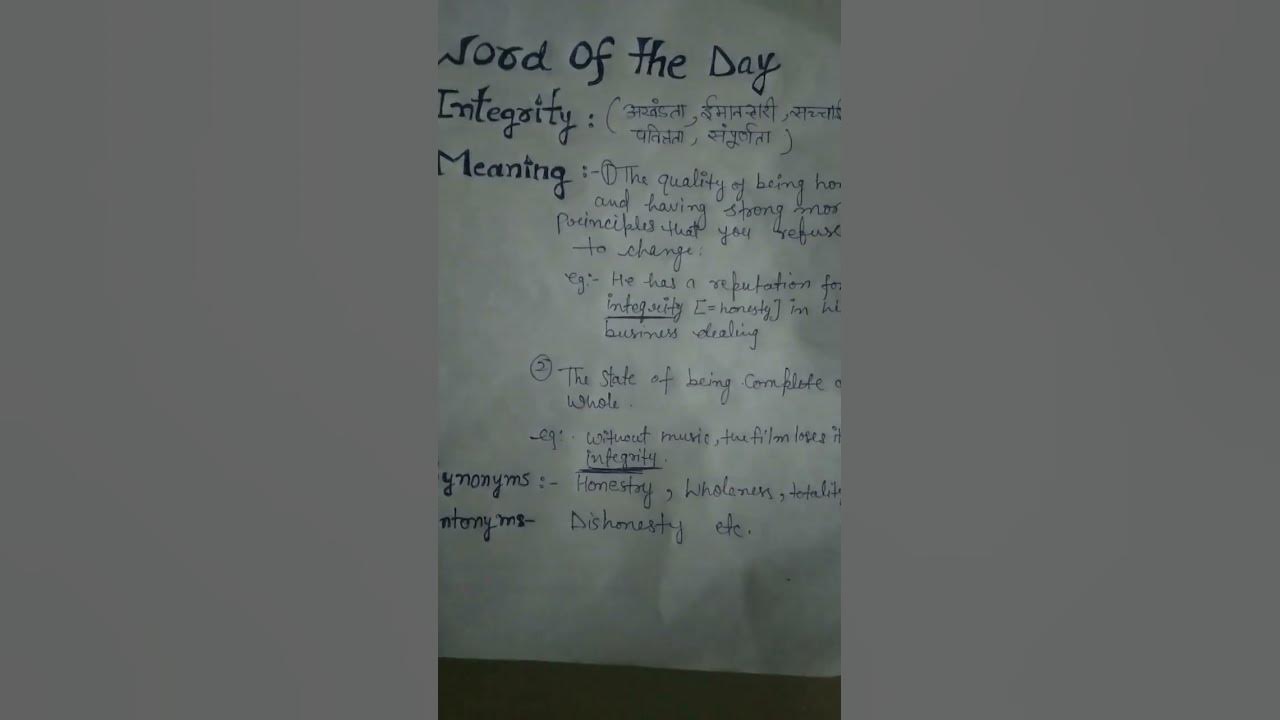 Word Of the Day
Integrity : (अखंडता, ईमानदारी, सच्चाई
पवित्रता, संपूर्णता )
Meaning :- ① The quality of being hon
and having strong mor
principles that you refuse
to change.
eg:- He has a reputation for
integrity [=honesty] in hi
business dealing
② The State of being Complete o
Whole.
eg:. without music, the film loses it
integrity.
ynonyms :- Honestry, Wholeness, totality
ntonyms- Dishonesty etc.